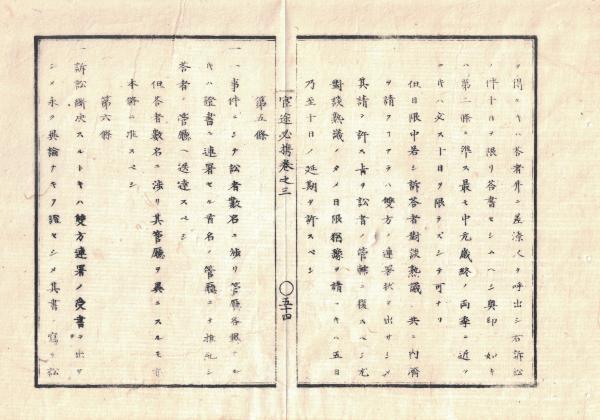 ヲ得ルキハ答者幷ニ差添人ヲ呼出シ右訴訟
ノ件十日ヲ限リ答書セシムヘシ奥印 如キ
ハ第二條ニ準ス最モ中元歳終ノ両季ニ近
ツキハ必ス十日ヲ限ラズシテ可ナリ
但日限中若シ訴答者對談熟議 共ニ内濟
ヲ請フコアラハ雙方ノ連署状ヲ出サシメ
其請ヲ許ス旨ヲ訟者ノ管轄ニ復スベシ尤
對談熟議ノタメ日限猶豫ヲ請フキハ五日
乃至十日ノ延期ヲ許スベシ
官途必携巻之三
〇五十四
第五條
一 事件ニシテ訟者數名ニ渉リ管廳各
キハ證書ニ連署セル首名ノ管廳ニテ推糺シ
答者ノ管廳ヘ送達スベシ
但答者數名ニ渉リ其管廳ヲ異ニスルモ亦
本條ニ准スベシ
第六條
一 訴訟斷决スルトキハ雙方連署ノ受書ヲ出サ
シメ永ク異論ナキヲ證セシメ其書ノ寫ヲ訟